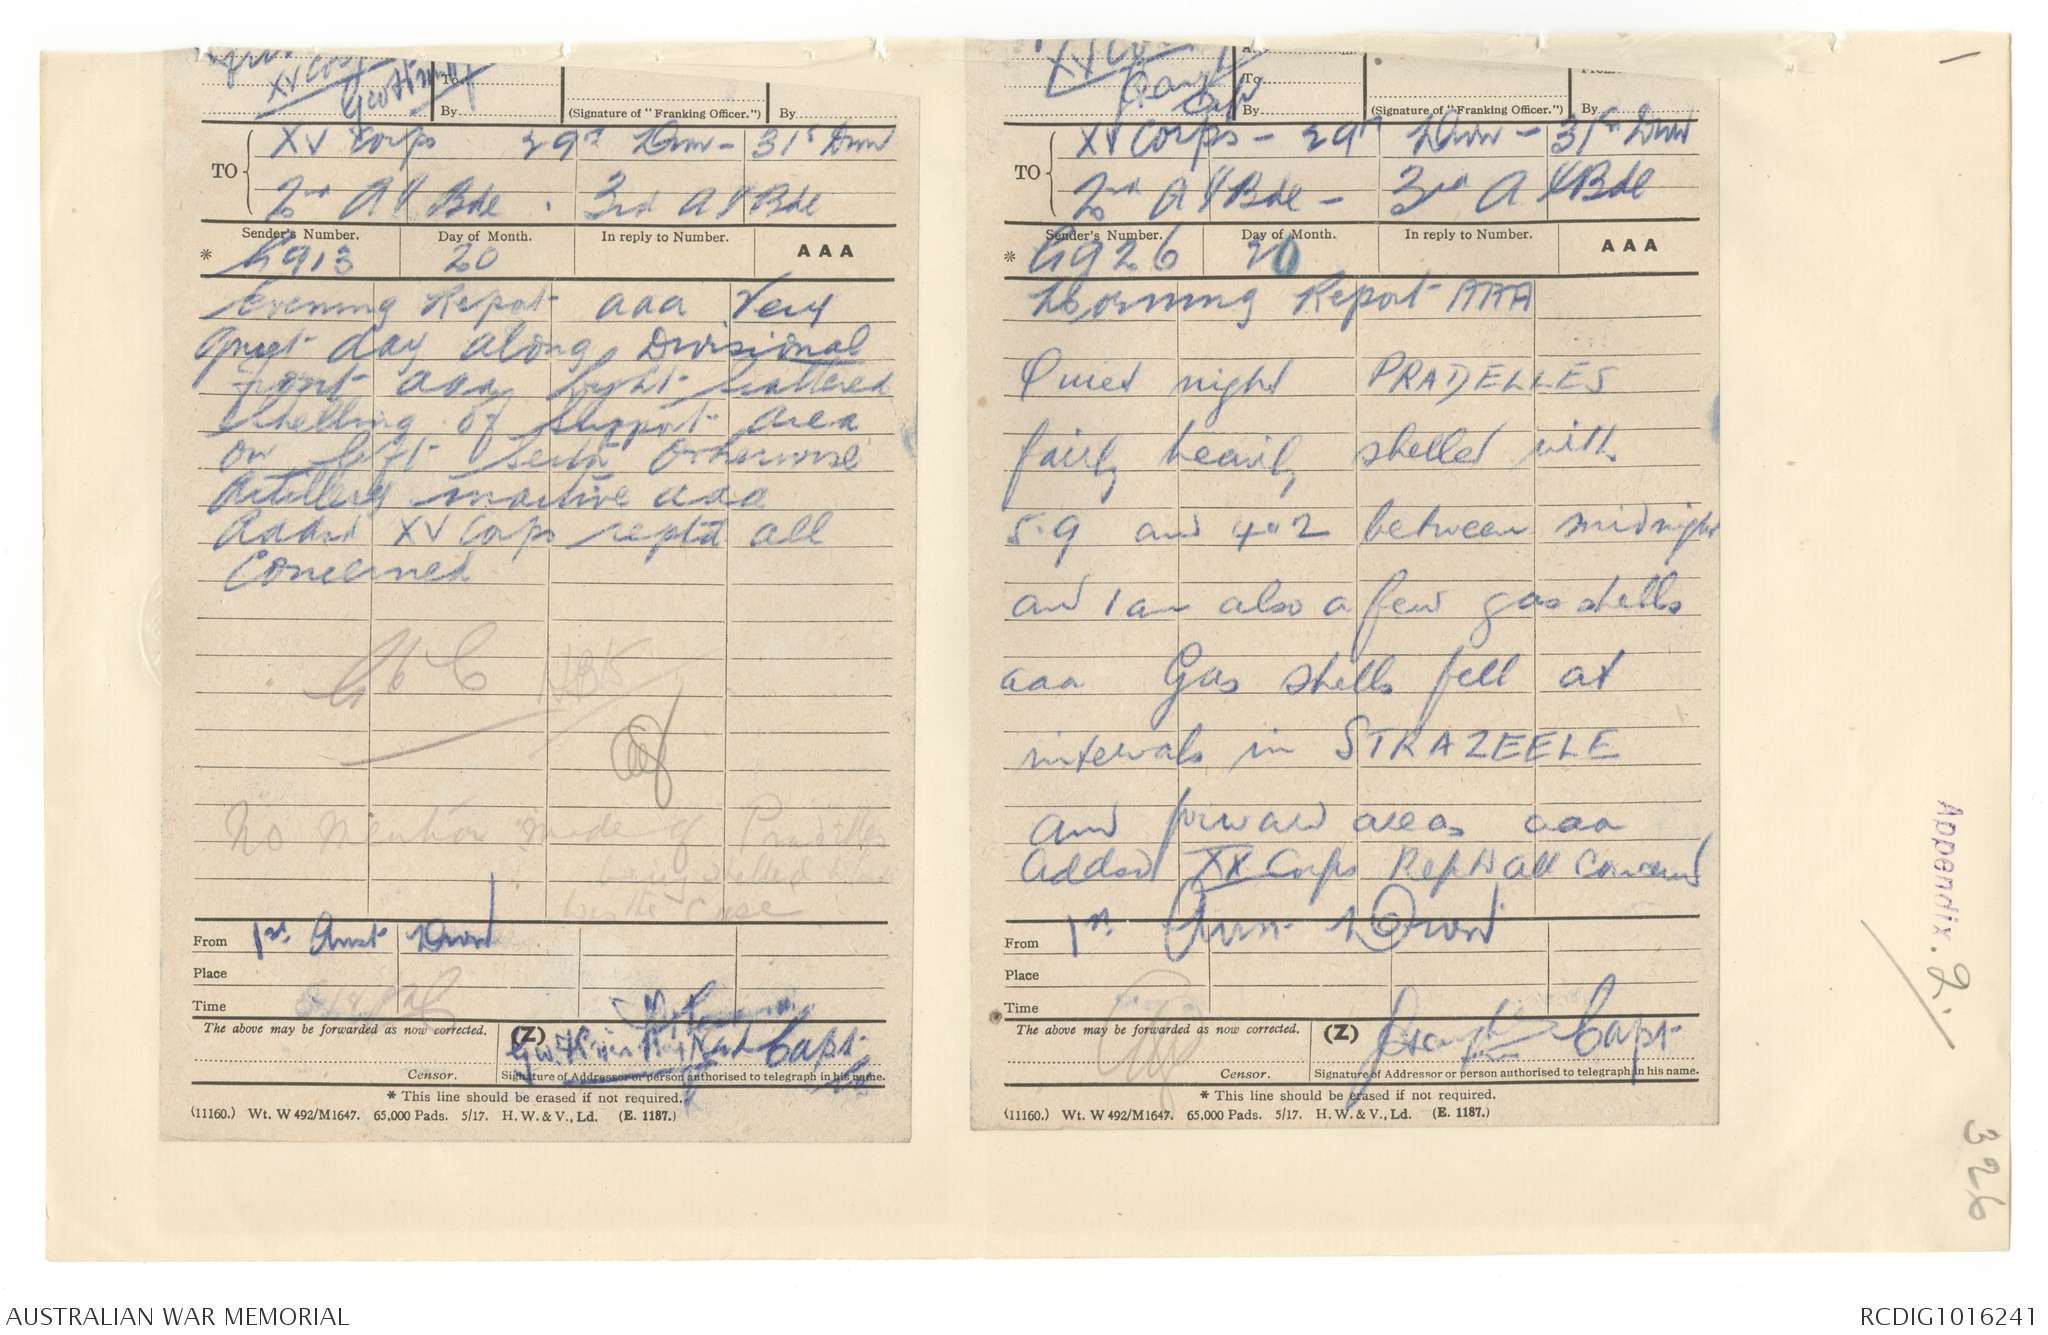 XV Corps
To
By
(Signature of "Franking Officer.")
By
TO
XV Corps 29th Divn - 31st Divn
2nd A I Bde . 3rd A I Bde
Sender's Number.
Day of Month.
In reply to Number.
AAA
* G913
20
Evening Report aaa Very
quiet day along Divisional
front aaa light scattered
shelling of support area
on left sector Otherwise
Artillery inactive aaa
Addsd XV Corps reptd all
Concerned
No mention made of Pradelles
being shelled
the case
From
1st Aust Divn
Place
Time
The above may be forwarded as now corrected.
(Z)
Capt
Censor.
Signature of Addressor or person authorised to telegraph in his name.
* This line should be erased if not required.
(11160.) Wt. W 492/M1647. 65,000 Pads. 5/17. H. W. & V., Ld. (E. 1187.)
XV Co
Capt
To
By
(Signature of "Franking Officer.")
By
TO
XV Corps - 29th Divn - 31st Divn
2nd A I Bde - 3rd A I Bde
Sender's Number.
Day of Month.
In reply to Number.
AAA
* G926
20
Morning Report AAA
Quiet night PRADELLES
fairly heavily shelled with
5.9 and 4.2 between midnight
and 1 am also a few gas shells
aaa Gas shells fell at
intervals in STRAZEELE
and forward areas aaa
Addsd XV Corps Reptd all Concerned
From
1st Aus Divn
Place
Time
The above may be forwarded as now corrected.
(Z)
Capt
Censor.
Signature of Addressor or person authorised to telegraph in his name.
* This line should be erased if not required.
(11160.) Wt. W 492/M1647. 65,000 Pads. 5/17. H. W. & V., Ld. (E. 1187.)
Appendix. 2.
326
AUSTRALIAN WAR MEMORIAL
RCDIG1016241